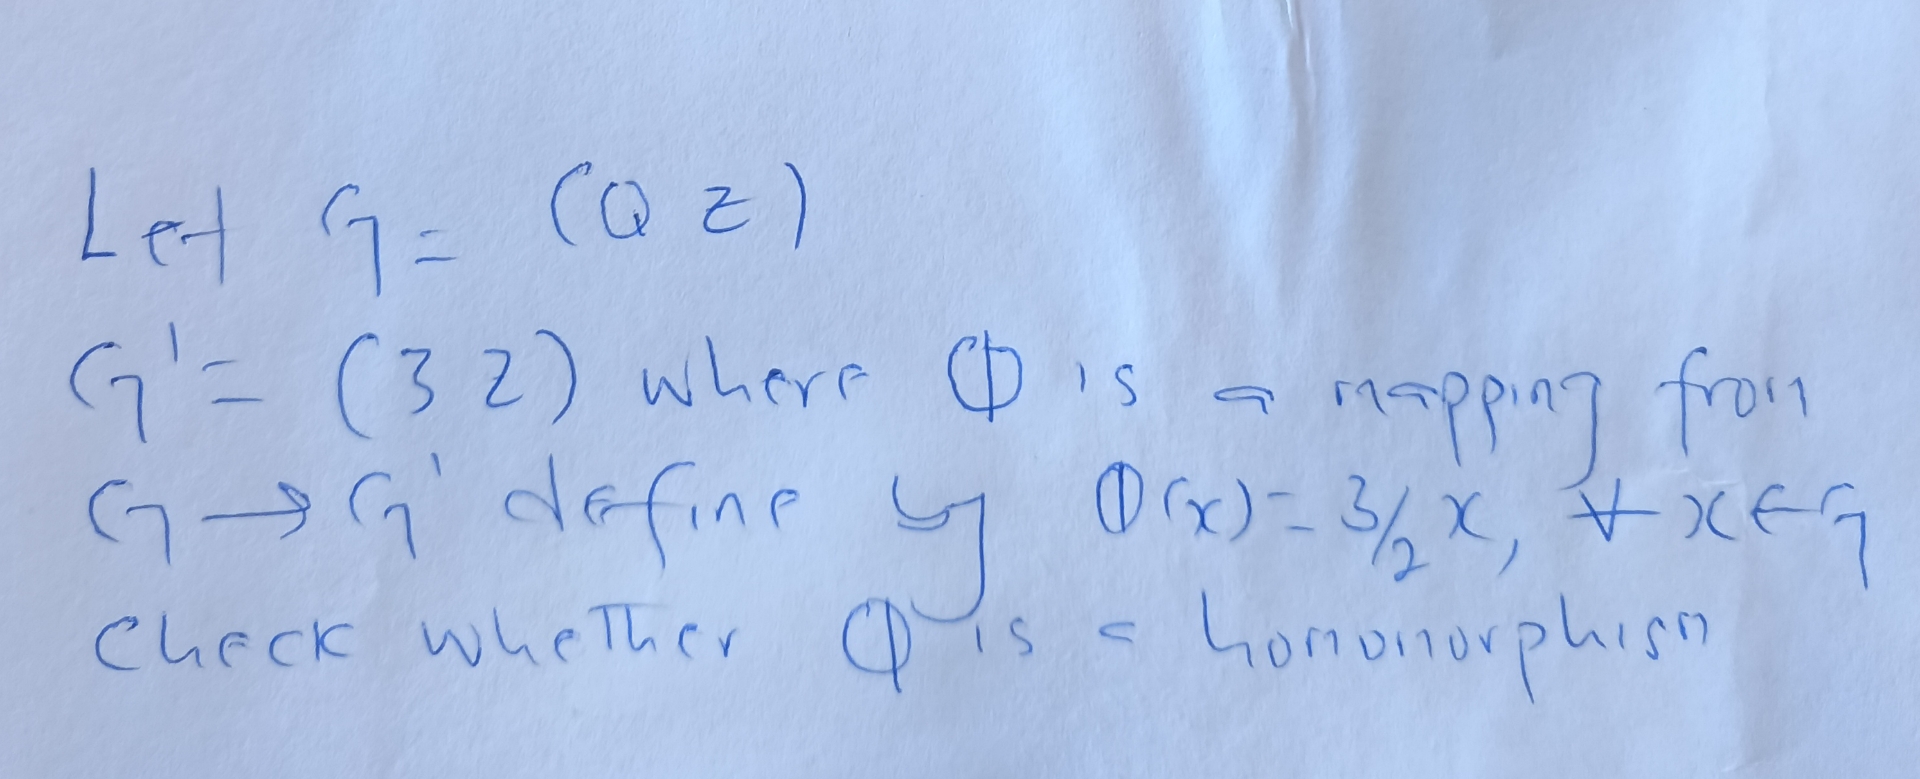 Let G = (Q Z)
G' = (3 Z) where Φ is a mapping from
G → G' define by Φ(x) = 3/2 x, ∀ x ∈ G
Check whether Φ is a homomorphism